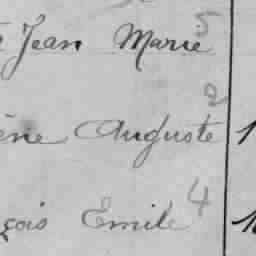 Jean Marie 5
ène Auguste 2 1
çois Emile 4 1